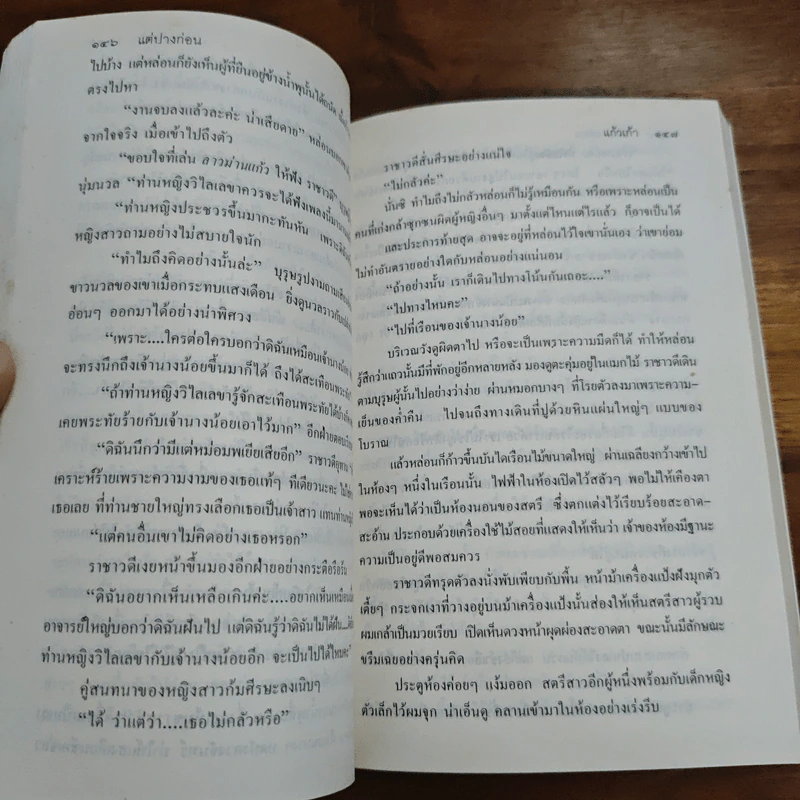 ๑๔๖ แต่ปางก่อน
ไปบ้าง แต่หล่อนก็ยังเห็นผู้ที่ยืนอยู่ข้างน้ำพุนั้นได้ถนัด
ตรงไปหา
“งานจบลงแล้วละค่ะ น่าเสียดาย”
จากใจจริง เมื่อเข้าไปถึงตัว
“ขอบใจที่เล่น ลาวม่านแก้ว ให้ฟัง ราชาวดี”
นุ่มนวล “ท่านหญิงวิไลเลขาควรจะได้ฟังเพลงนี้มานาน
“ท่านหญิงประชวรขึ้นมากะทันหัน เพราะดิฉัน
หญิงสาวถามอย่างไม่สบายใจนัก
“ทำไมถึงคิดอย่างนั้นล่ะ” บุรุษรูปงามถาม
ขาวนวลของเขาเมื่อกระทบแสงเดือน ยิ่งดูนวลราวกับ
อ่อนๆ ออกมาได้อย่างน่าพิศวง
“เพราะ....ใครต่อใครบอกว่าดิฉันเหมือนเจ้านางน้อย
จะทรงนึกถึงเจ้านางน้อยขึ้นมาก็ได้ ถึงได้สะเทือนพระทัย
“ถ้าท่านหญิงวิไลเลขารู้จักสะเทือนพระทัยได้
เคยพระทัยร้ายกับเจ้านางน้อยเอาไว้มาก” อีกฝ่ายตอบ
“ดิฉันนึกว่ามีแต่หม่อมพเยียเสียอีก” ราชาวดีอุทาน
เคราะห์ร้ายเพราะความงามของเธอแท้ๆ ทีเดียวนะคะ
เธอเลย ที่ท่านชายใหญ่ทรงเลือกเธอเป็นเจ้าสาว แทนท่านหญิง
“แต่คนอื่นเขาไม่คิดอย่างเธอหรอก”
ราชาวดีเงยหน้าขึ้นมองอีกฝ่ายอย่างกระตือรือร้น
“ดิฉันอยากเห็นเหลือเกินค่ะ....อยากเห็นเหมือน
อาจารย์ใหญ่บอกว่าดิฉันฝันไป แต่ดิฉันรู้ว่าดิฉันไม่ได้ฝัน....
ท่านหญิงวิไลเลขากับเจ้านางน้อยอีก จะเป็นไปได้ไหมคะ”
คู่สนทนาของหญิงสาวก้มศีรษะลงเนิบๆ
“ได้ ว่าแต่ว่า....เธอไม่กลัวหรือ”
แก้วเก้า ๑๔๗
ราชาวดีสั่นศีรษะอย่างแน่ใจ
“ไม่กลัวค่ะ”
นั่นซิ ทำไมถึงไม่กลัวหล่อนก็ไม่รู้เหมือนกัน หรือเพราะหล่อนเป็น
คนที่เก่งกล้าซุกซนผิดผู้หญิงอื่นๆ มาตั้งแต่ไหนแต่ไรแล้ว ก็อาจเป็นได้
และประการท้ายสุด อาจจะอยู่ที่หล่อนไว้ใจเขานั่นเอง ว่าเขาย่อม
ไม่ทำอันตรายอย่างใดกับหล่อนอย่างแน่นอน
“ถ้าอย่างนั้น เราก็เดินไปทางโน้นกันเถอะ....”
“ไปทางไหนคะ”
“ไปที่เรือนของเจ้านางน้อย”
บริเวณวังดูผิดตาไป หรือจะเป็นเพราะความมืดก็ได้ ทำให้หล่อน
รู้สึกว่าแถวนั้นมีที่พักอยู่อีกหลายหลัง มองดูตะคุ่มอยู่ในแมกไม้ ราชาวดีเดิน
ตามบุรุษผู้นั้นไปอย่างว่าง่าย ผ่านหมอกบางๆ ที่โรยตัวลงมาเพราะความ–
เย็นของค่ำคืน ไปจนถึงทางเดินที่ปูด้วยหินแผ่นใหญ่ๆ แบบของ
โบราณ
แล้วหล่อนก็ก้าวขึ้นบันไดเรือนไม้ขนาดใหญ่ ผ่านเฉลียงกว้างเข้าไป
ในห้องๆ หนึ่งในเรือนนั้น ไฟฟ้าในห้องเปิดไว้สลัวๆ พอไม่ให้เคืองตา
พอจะเห็นได้ว่าเป็นห้องนอนของสตรี ซึ่งตกแต่งไว้เรียบร้อยสะอาด–
สะอ้าน ประกอบด้วยเครื่องใช้ไม้สอยที่แสดงให้เห็นว่า เจ้าของห้องมีฐานะ
ความเป็นอยู่ดีพอสมควร
ราชาวดีทรุดตัวลงนั่งพับเพียบกับพื้น หน้าม้าเครื่องแป้งฝังมุกตัว
เตี้ยๆ กระจกเงาที่วางอยู่บนม้าเครื่องแป้งนั้นส่องให้เห็นสตรีสาวผู้รวบ
ผมเกล้าเป็นมวยเรียบ เปิดเห็นดวงหน้าผุดผ่องสะอาดตา ขณะนั้นมีลักษณะ
ขรึมเฉยอย่างครุ่นคิด
ประตูห้องค่อยๆ แง้มออก สตรีสาวอีกผู้หนึ่งพร้อมกับเด็กหญิง
ตัวเล็กไว้ผมจุก น่าเอ็นดู คลานเข้ามาในห้องอย่างเร่งรีบ